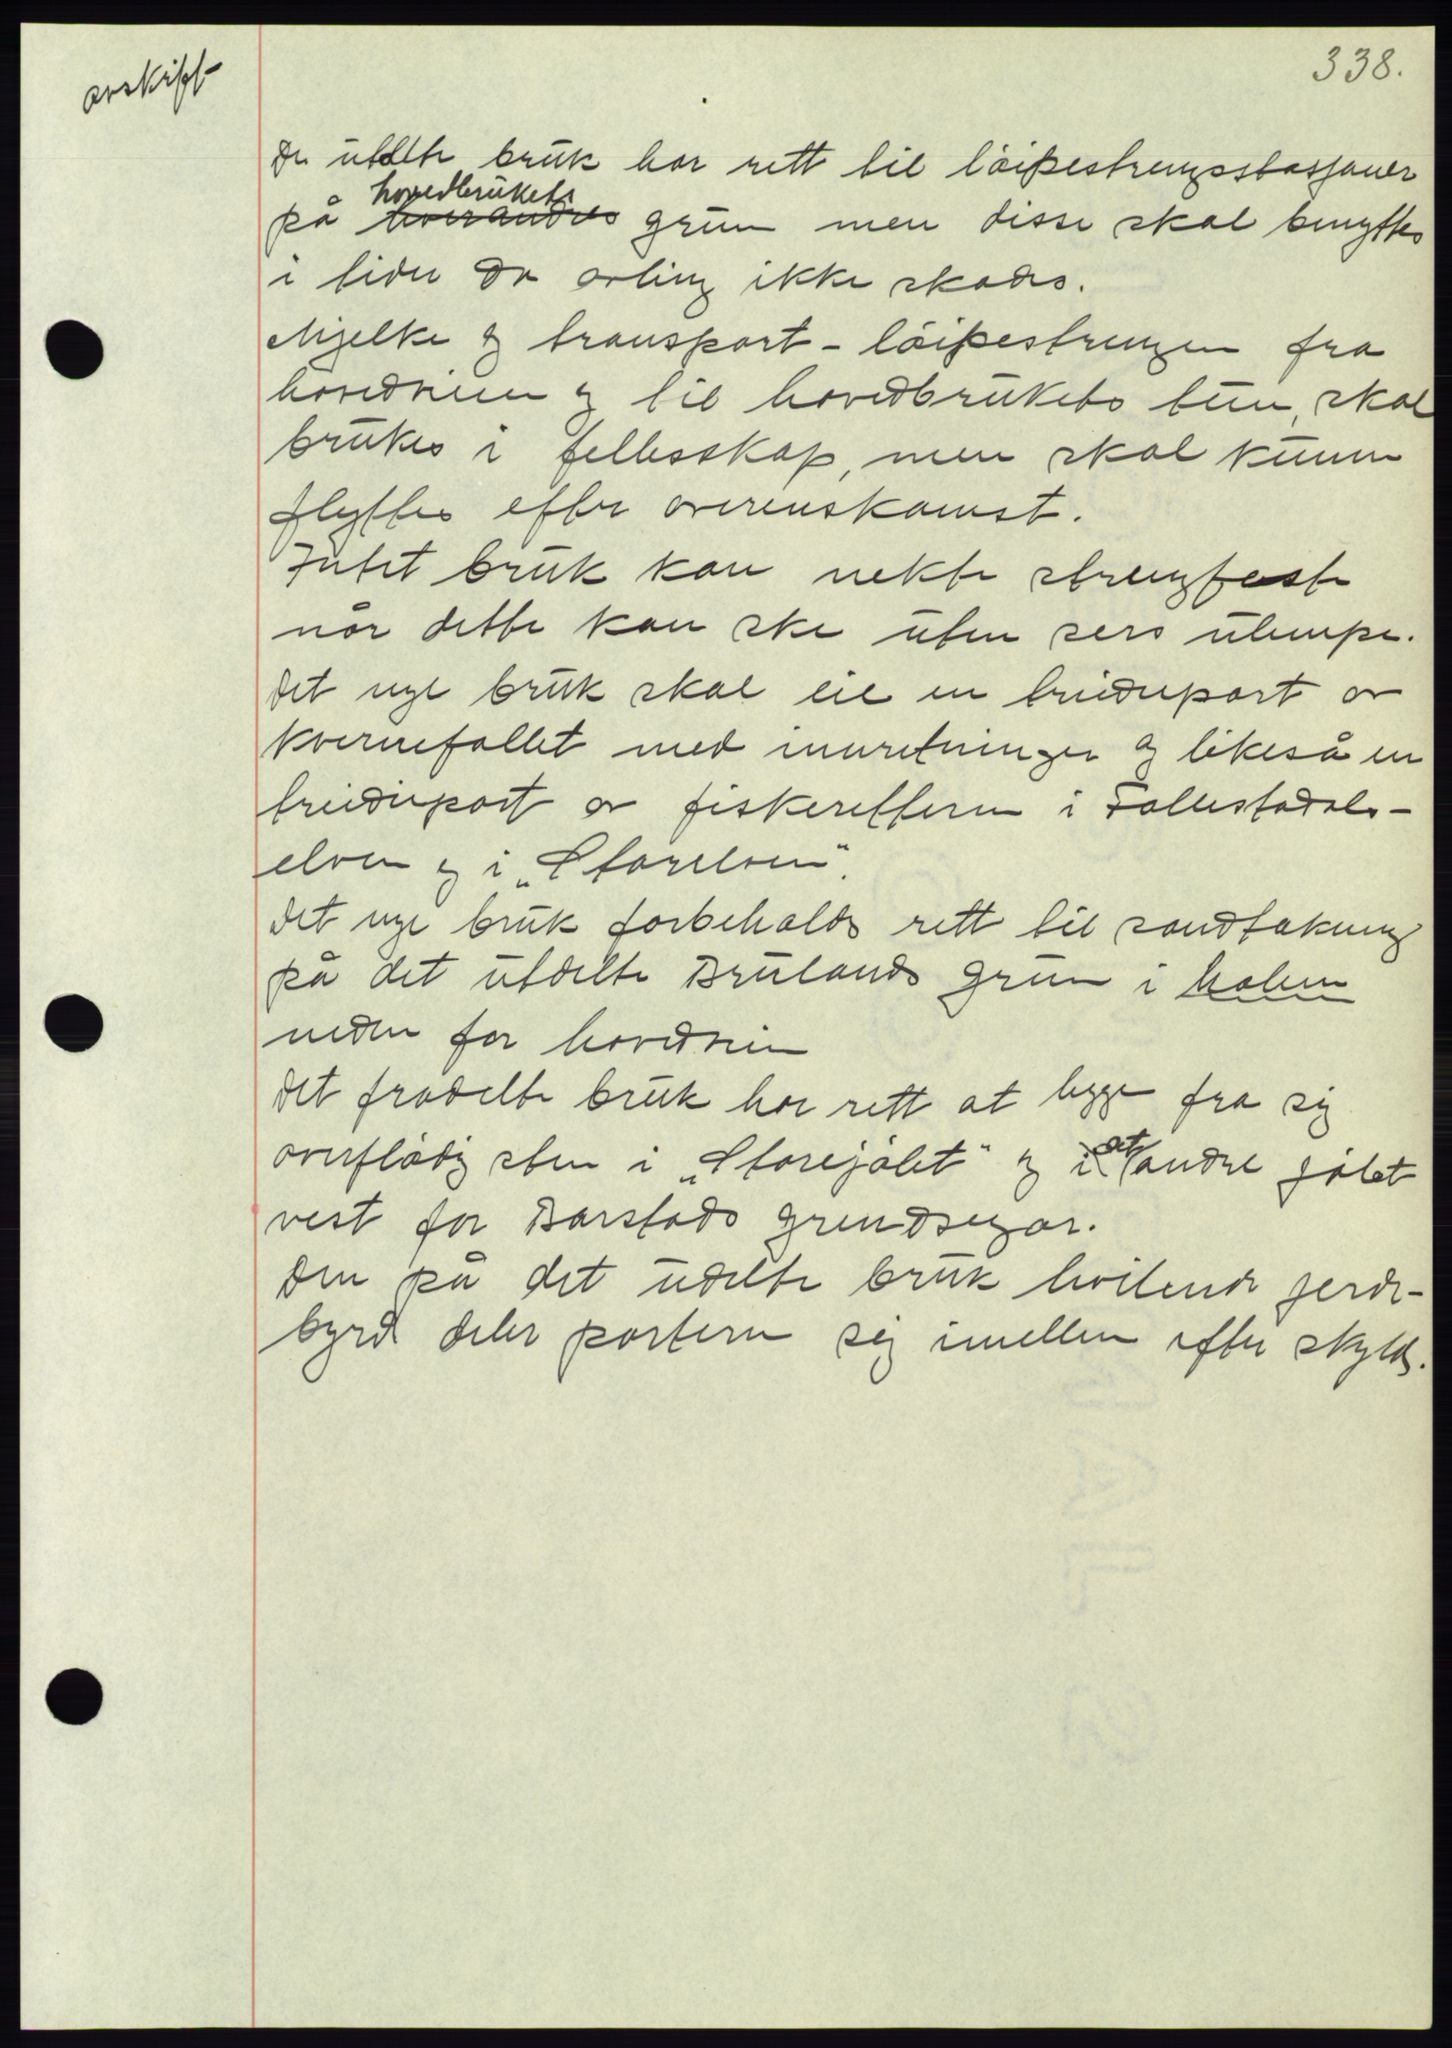 338.
avskift
De utdelte bruk har rett til löipestrengsstasjoner
på hovedbrukets hverandres grunn men disse skal benyttes
i tider da avling ikke skades.
Mjelke og transport-löipestrengen fra
hovedveien og til hovedbrukets tun, skal
brukes i fellesskap, men skal kunne
flyttes efter overenskomst.
Intet bruk kan nekte strengfeste
når dette kan ske uten sers ulempe.
Det nye bruk skal eie en tridjepart av
kvernefallet med innretninger og likeså en
tridjepart av fiskeretten i Follestadals-
elven og i "Storelven".
Det nye bruk forbeholdes rett til sandtakning
på det utdelte Brulands grunn i holen
neden for hovedveien
Det fradelte bruk har rett at legge fra sig
overflödig sten i "Storejölet" og i det andre jölet
vest for Barstads grendsegar.
Den på det udelte bruk hvilende gjerde-
byrd deler partene sig imellem efter skyld.